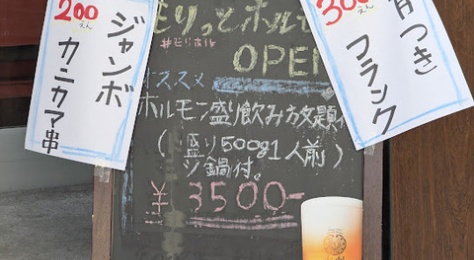 200えん
ジャンボ
カニカマ串
もりっとホルモ
#もりほる
OPEN
オススメ
ホルモン盛り飲み放題付
(盛り500g1人前)
ツ鍋付。
¥3500-
300えん
骨つき
フランク